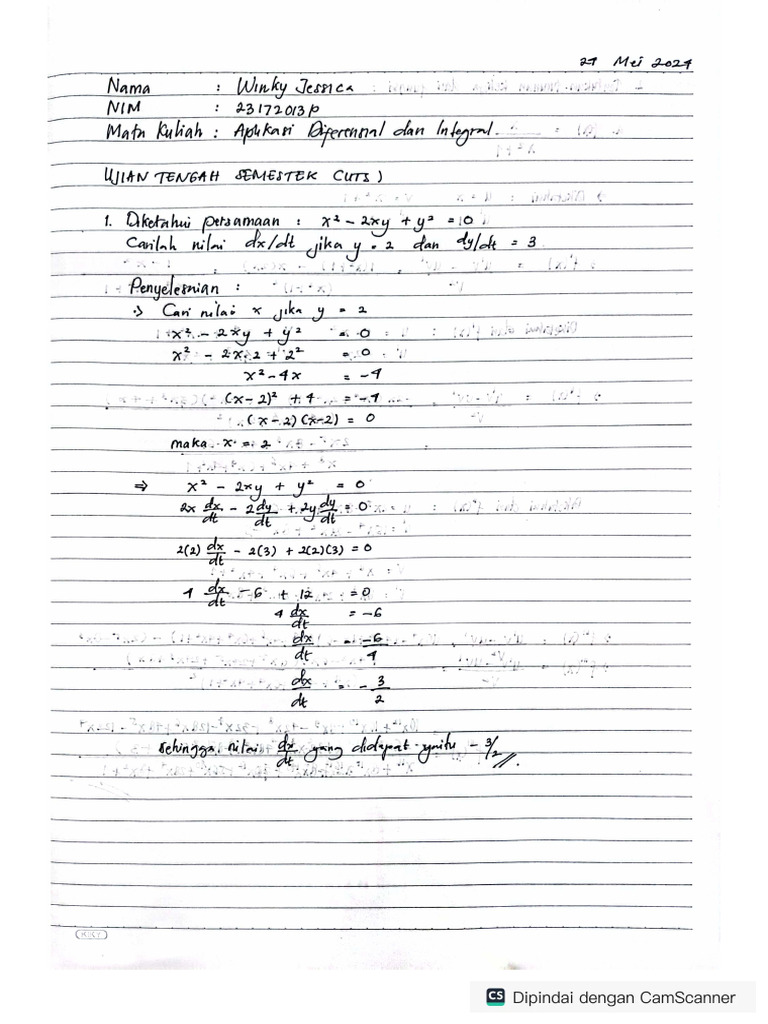 27 Mei 2024
Nama : Winky Jessica
NIM : 23172013P
Mata Kuliah : Aplikasi Diferensial dan Integral
UJIAN TENGAH SEMESTER (UTS)
1. Diketahui persamaan : x² - 2xy + y² = 0
Carilah nilai dx/dt jika y = 2 dan dy/dt = 3
Penyelesaian :
Cari nilai x jika y = 2
x² - 2xy + y² = 0
x² - 2x.2 + 2² = 0
x² - 4x = -4
(x-2)² + 4 = -4
(x-2)(x-2) = 0
maka x = 2
⇒ x² - 2xy + y² = 0
2x dx/dt - 2 dy/dt + 2y dy/dt = 0
2(2) dx/dt - 2(3) + 2(2)(3) = 0
4 dx/dt - 6 + 12 = 0
4 dx/dt = -6
dx/dt = -6/4
dx/dt = - 3/2
Sehingga nilai dx/dt yang didapat yaitu - 3/2 //.
KIKY
CS Dipindai dengan CamScanner